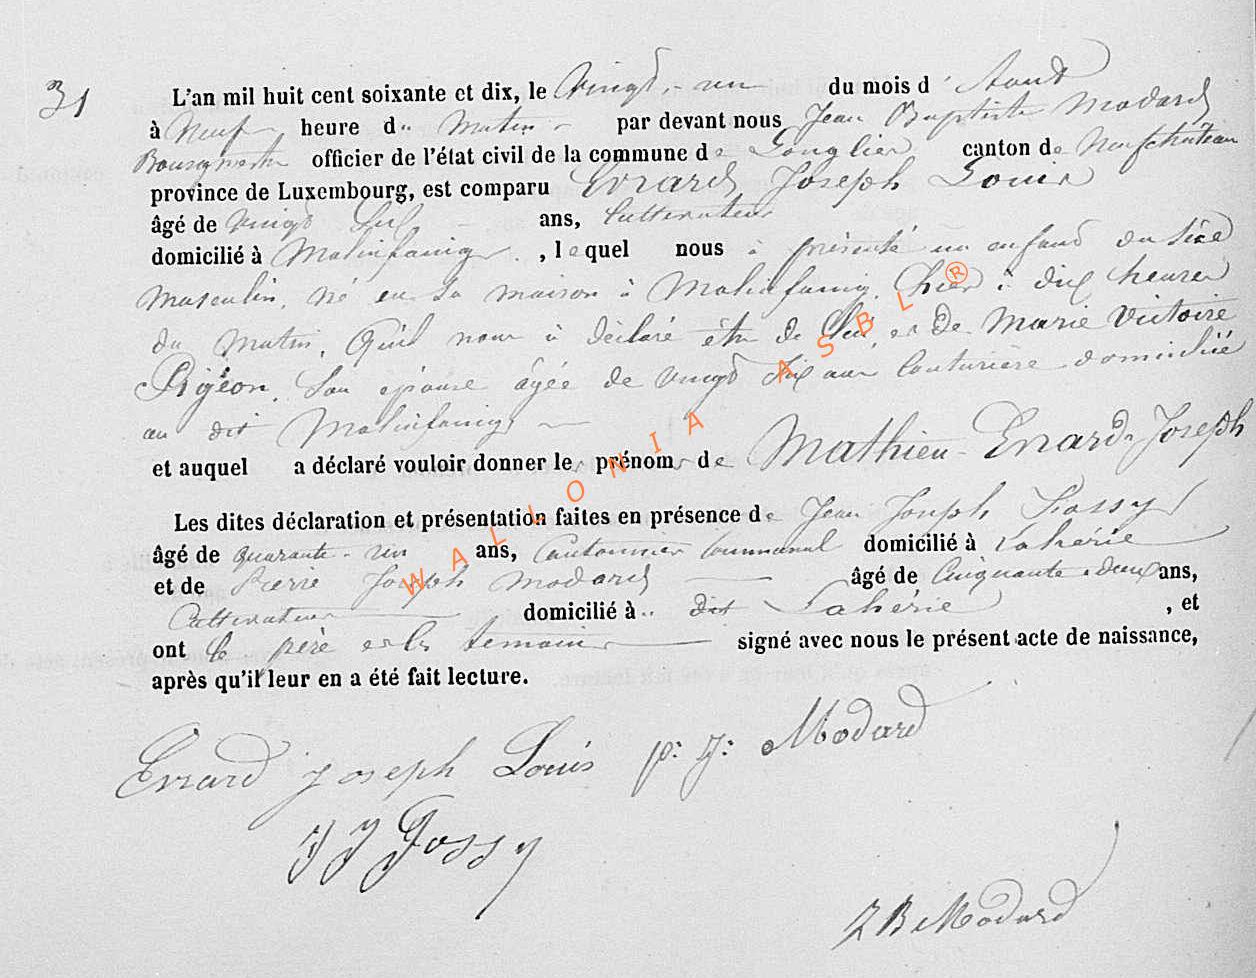 31
L'an mil huit cent soixante et dix, le Vingt-un du mois d'Aout
à Neuf heure du Matin par devant nous Jean Baptiste Modard
Bourgmestre officier de l'état civil de la commune de Longlier canton de Neufchâteau
province de Luxembourg, est comparu Evrard Joseph Louis
âgé de vingt ans, Cultivateur
domicilié à Malinfaing, lequel nous à présenté un enfant du sexe
masculin, né en sa maison à Malinfaing, hier à dix heures
du Matin, Qu'il nous à déclaré être de lui, et de Marie Victoire
Pigeon, Son épouse âgée de vingt six ans Couturière domiciliée
au dit Malinfaing
et auquel a déclaré vouloir donner les prénoms de Mathieu-Evrard-Joseph
Les dites déclaration et présentation faites en présence de Jean Joseph Fossy
âgé de quarante-un ans, Cantonnier Communal domicilié à Lahérie
et de Pierre Joseph Modard âgé de Cinquante-deux ans,
Cultivateur domicilié à dit Lahérie, et
ont le père et les temoins signé avec nous le présent acte de naissance,
après qu'il leur en a été fait lecture.
Evrard Joseph Louis p: J: Modard
J J Fossy
J B Modard
WALLONIA ASBL ®